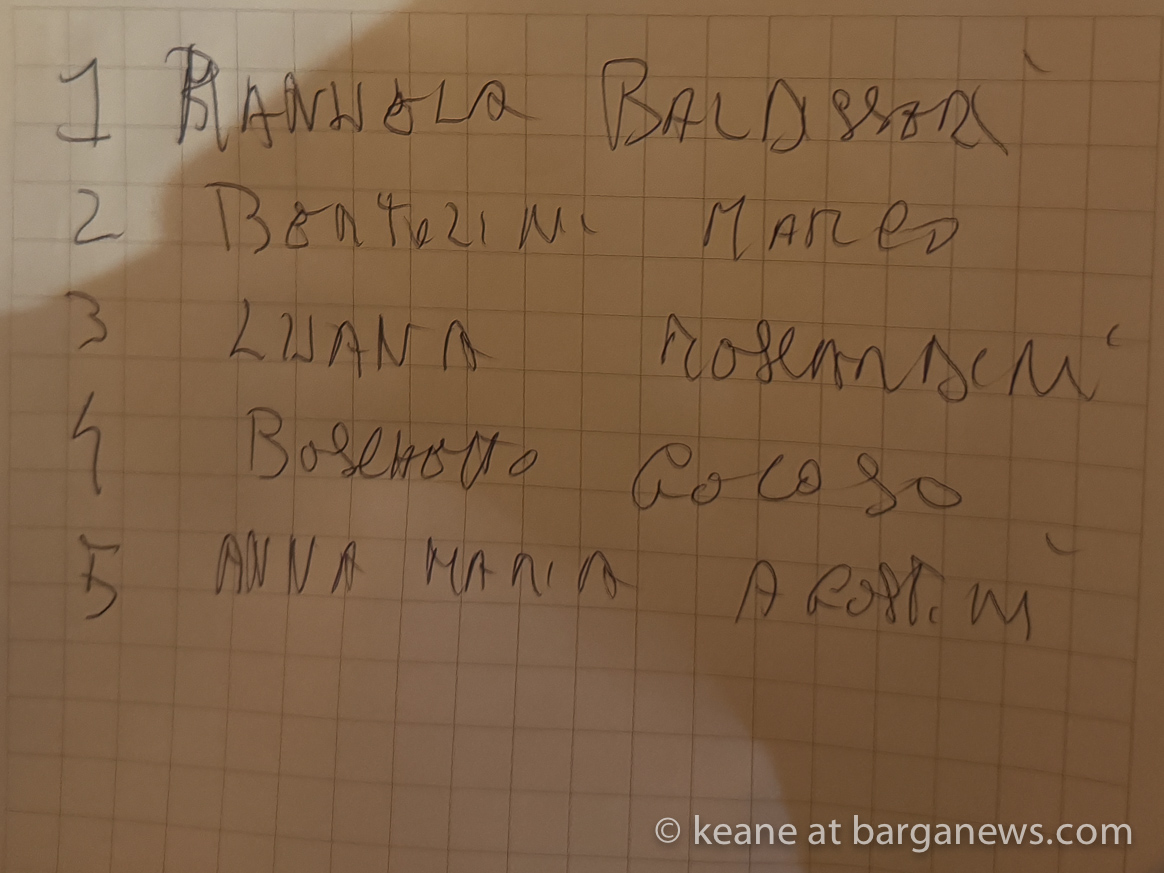 1 MANUELA BALDASSERI
2 BERTOLINI MARCO
3 LUANA MOSCARDINI
4 BOSCHETTO GOLOSO
5 ANNA MARIA AGOSTINI
© keane at barganews.com